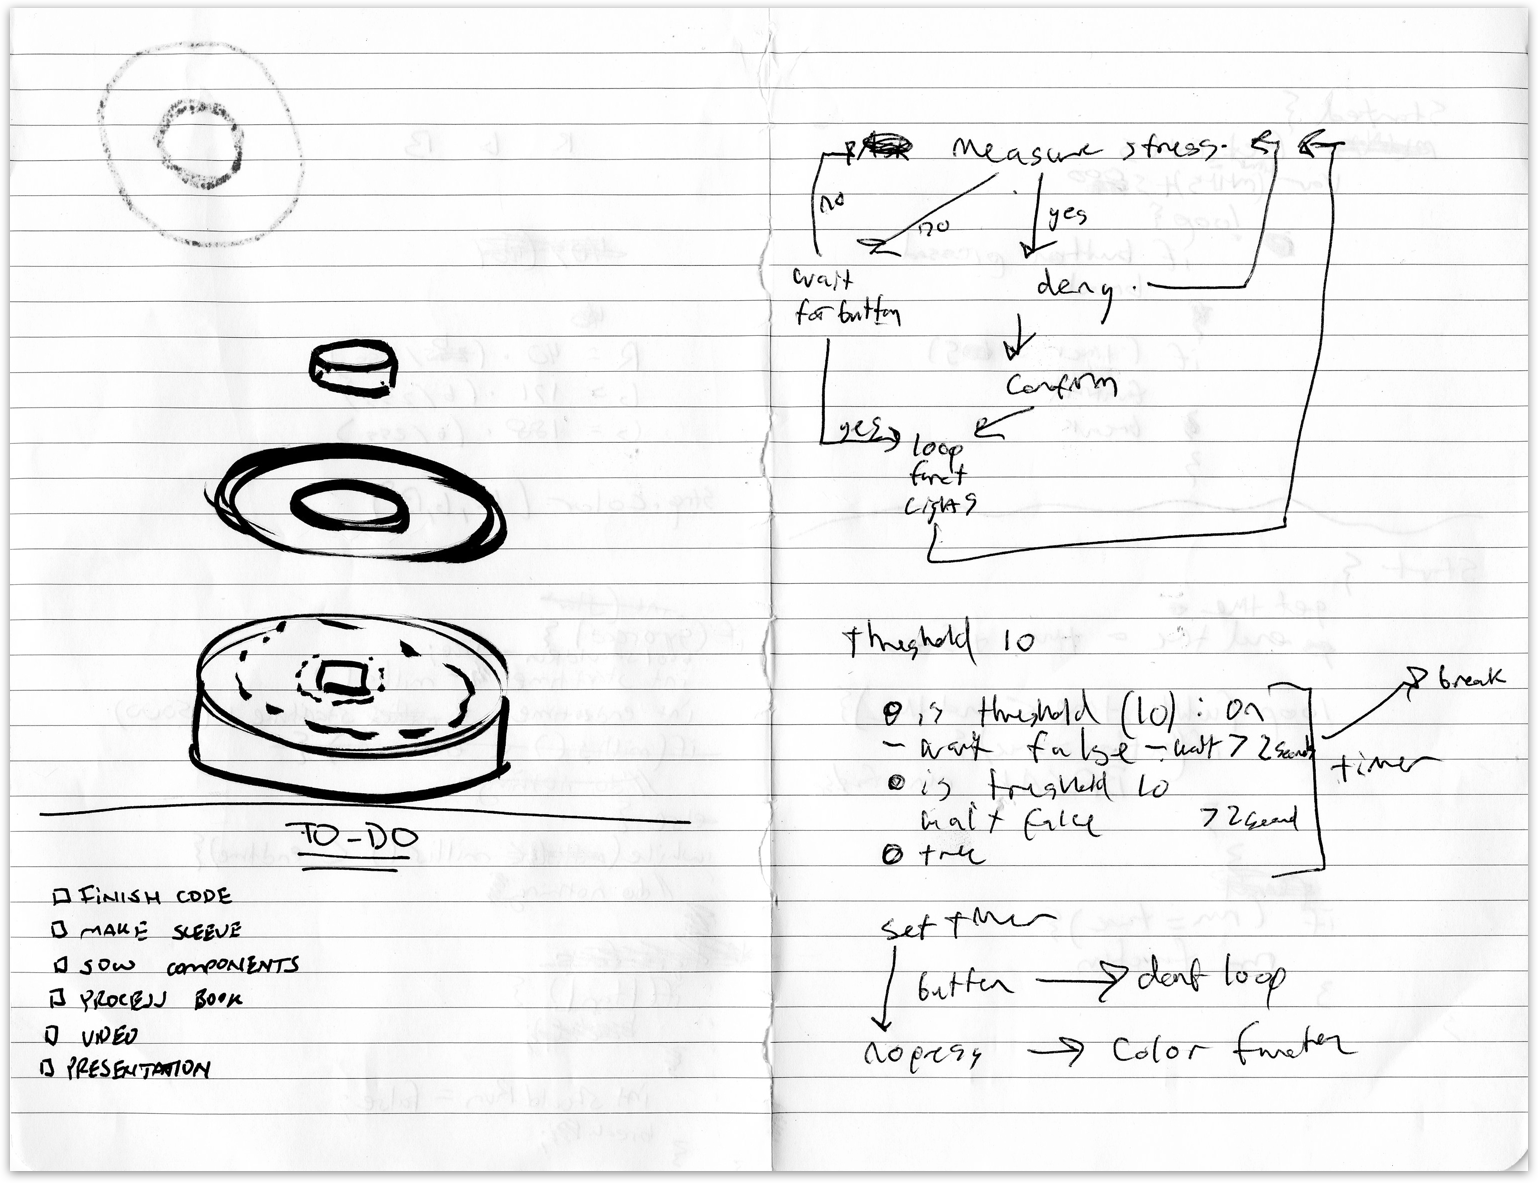 TO-DO
FINISH CODE
MAKE SLEEVE
SOW COMPONENTS
PROCESS BOOK
VIDEO
PRESENTATION
Measure stress.
no
no
yes
wait
for button
deny.
confirm
yes
loop
funct
Lights
threshold 10
is threshold (10) : on
- wait false - wait > 2 seconds
is threshold 10
wait false > 2 second
true
break
timer
set timer
button → dont loop
no press → Color function